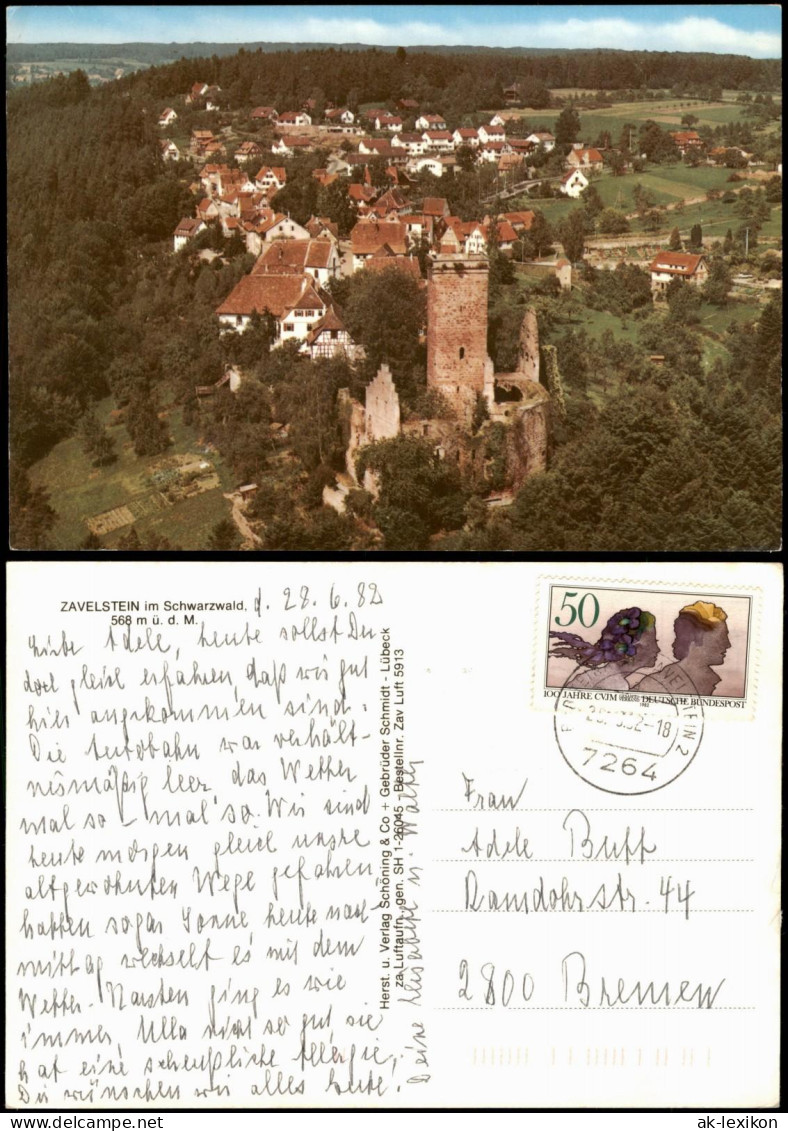 ZAVELSTEIN im Schwarzwald,
568 m ü. d. M.
d. 28.6.82
Liebe Adele, heute sollst Du
doch gleich erfahren, daß wir gut
hier angekommen sind.
Die Autobahn war verhält-
nismäßig leer das Wetter
mal so - mal so. Wir sind
heute morgen gleich unsre
altgewohnten Wege gefahren
hatten sogar Sonne, heute nach-
mittag wechselt es mit dem
Wetter. Karsten ging es wie
immer, Ulla nicht so gut, sie
hat eine scheußliche Allergie,
Dir wünschen wir alles Gute.
Deine Elisabeth u. Walter
Herst. u. Verlag Schöning & Co + Gebrüder Schmidt - Lübeck
gen. SH 1-26045 - Bestellnr. Zav Luft 5913
50
100 JAHRE CVJM
DEUTSCHE BUNDESPOST
-18
7264
2
Frau
Adele Buff
Ramdohrstr. 44
2800 Bremen
ak-ansichtskarten.de
ak-lexikon